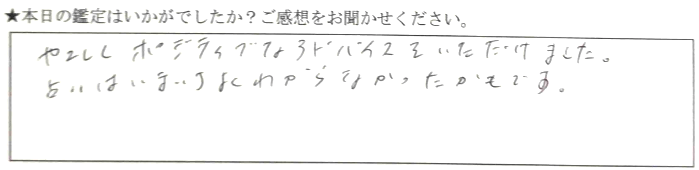 ★本日の鑑定はいかがでしたか？ご感想をお聞かせください。
やさしくポジティブなアドバイスをいただけました。
占いはいまいちよくわからなかったかもです。